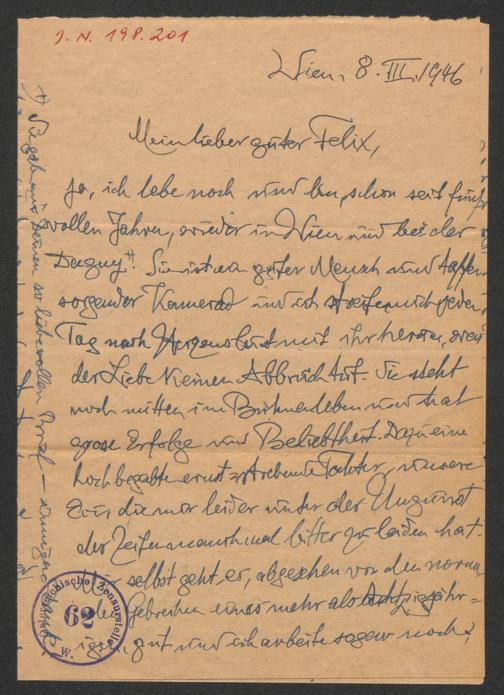 J.N. 198.201
Wien, 8. III. 1946
Mein lieber guter Felix,
Ja, ich lebe noch und bin schon seit fünf
vollen Jahren, wieder in Wien und bei der
Dagny +). Sie ist ein guter Mensch und
sorgender Kamerad und ich streite mich jeden
Tag nach Herzenslust mit ihr herum, was
der Liebe keinen Abbruch tut. Sie steht
noch mitten im Bühnenleben und hat
grose Erfolge und Beliebtheit. Dazu eine
hochbegabte ernst strebende Tochter, unsere
Eva die nur leider unter der Ungunst
der Zeiten manchmal bitter zu leiden hat.
Mir selbst geht es, abgesehen von den
Gebrechen eines mehr als Achtzigjähr=
igen, gut und ich arbeite sogar noch,
+) Sie gab mir Deinen so liebevollen Brief –
Österreichische Zensurstelle
62
W.